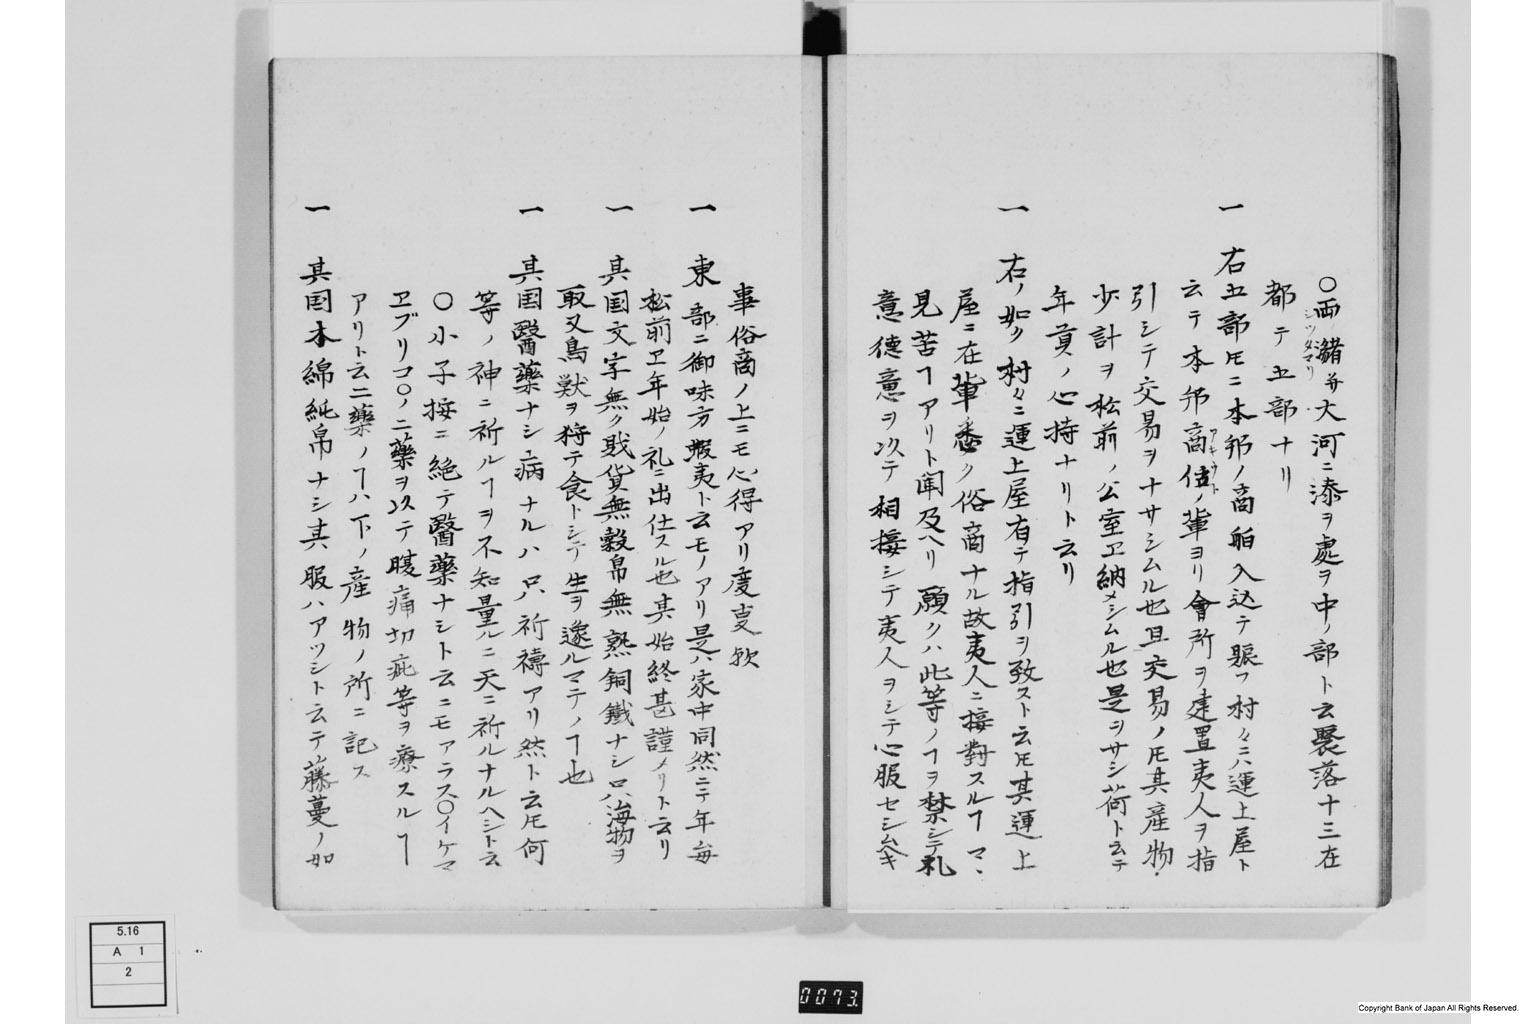 〇両瀦并大河ニ添ヲ處ヲ中ノ部ト云聚落十三在
シツタマリ
都テ五部ナリ
一 右五部㠪ニ本邦ノ商舶入込テ賑フ村々ニハ運上屋ト
云テ本邦商估ノ輩ヨリ會所ヲ建置夷人ヲ指
アキウト
引シテ交易ヲナサシムル也且交易ノ㠪其産物
少計ヲ松前ノ公室ヱ納メシムル也是ヲサシ荷ト云テ
年貢ノ心持ナリト云リ
一 右ノ如ク村々ニ運上屋有テ指引ヲ致スト云㠪其運上
屋ニ在輩悉ク俗商ナル故夷人ニ接對スルヿマヽ
見苦ヿアリト聞及ヘリ願クハ此等ノヿヲ禁シテ礼
意德意ヲ以テ相接シテ夷人ヲシテ心服セシムヘキ
事俗商ノ上ニモ心得アリ度叓歟
一 東部ニ御味方蝦夷ト云モノアリ是ハ家中同然ニテ年毎
松前ヱ年始ノ礼ニ出仕スル也其始終甚謹メリト云リ
一 其国文字無ク戝貨無穀帛無熟銅鐵ナシ只海物ヲ
取又鳥獣ヲ狩テ食トシテ生ヲ遂ルマテノヿ也
一 其国醫藥ナシ病ナルハ只祈禱アリ然ト云㠪何
等ノ神ニ祈ルヿヲ不知量ルニ天ニ祈ルナルヘシト云
〇小子按ニ絶テ醫藥ナシト云ニモアラス〇イケマ
ヱブリコ〇ノ二藥ヲ以テ腹痛切疵等ヲ療スルヿ
アリト云二藥ノヿハ下ノ産物ノ所ニ記ス
一 其国木綿純帛ナシ其服ハアツシト云テ藤蔓ノ如
5.16
A 1
2
0073.
Copyright Bank of Japan All Rights Reserved.